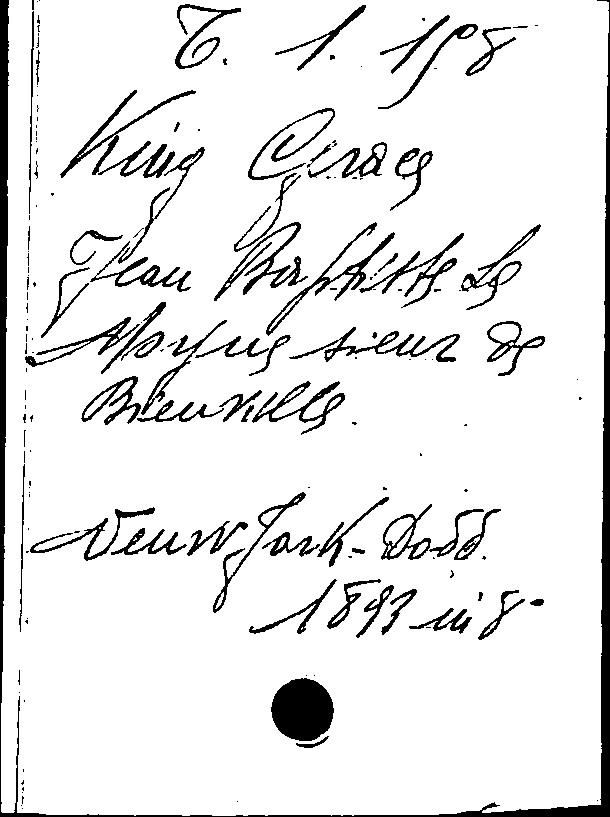 T. 1. 158
King Grace
Jean Baptiste Le
Moyne sieur de
Bienville.
New York - Dodd.
1893 in 8°